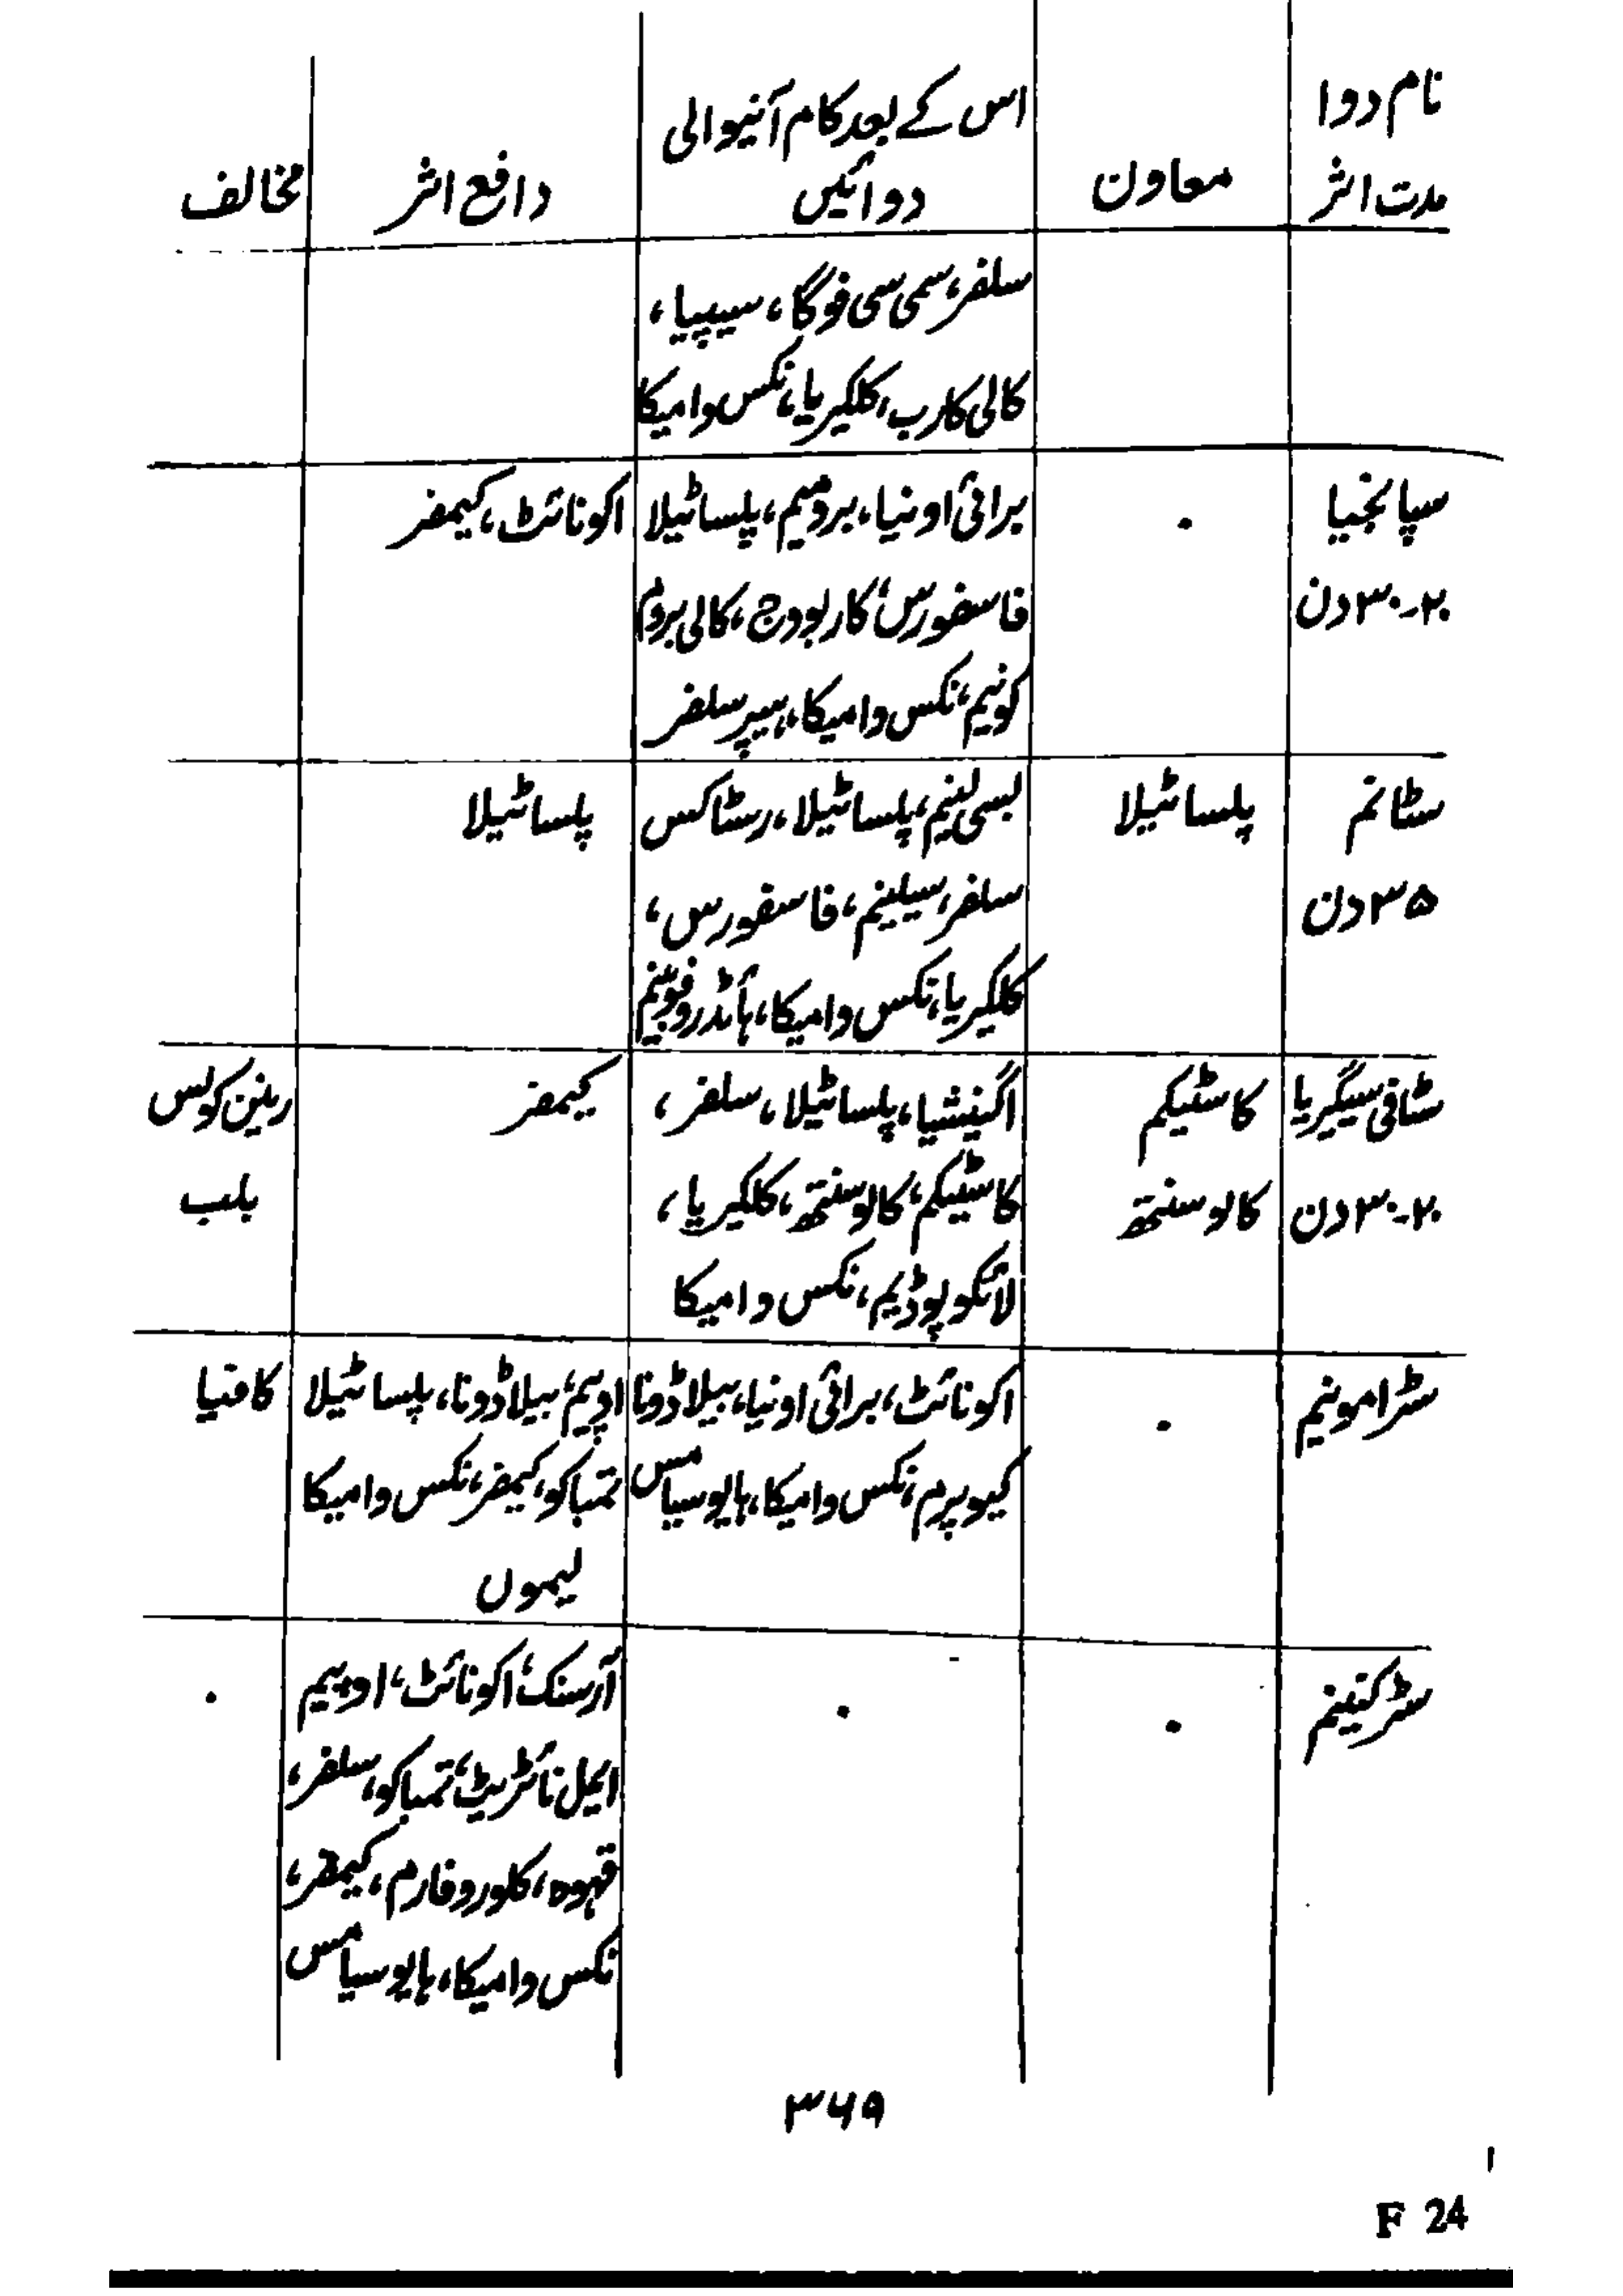 نام دوا
مدت اثر
معاون
اس کے بعد کام آنیوالی
دوائیں
دافع اثر
مخالف
سلفر، سمی سی فوگا، سیپیا،
کالی کارب، کلکیریا، نکس وامیکا
سپانجیا
۲۰-۳۰ دن
۰
برائی اونیا، برومیم، پلساٹیلا
فاسفورس، کاربووج، کالی بروم
کونیم، نکس وامیکا، ہیپر سلفر
اکونائٹ، کیمفر
سٹانم
۳۵ دن
پلساٹیلا
بسی لینم، پلساٹیلا، رسٹاکس
سلفر، سیلینیم، فاسفورس،
کلکیریا، نکس وامیکا، ہائڈروفوبینم
پلساٹیلا
سٹافی سیگریا
۲۰-۳۰ دن
کاسٹیکم
کالوسنتھ
اگنیشیا، پلساٹیلا، سلفر،
کاسٹیکم، کالوسنتھ، کلکیریا،
لائکوپوڈیم، نکس وامیکا
کیمفر
رینن کولس
بلب
سٹرامونیم
۰
اکونائٹ، برائی اونیا، بیلاڈونا
کیوپرم، نکس وامیکا، ہایوسیامس
اوپیم، بیلاڈونا، پلساٹیلا
تمباکو، کیمفر، نکس وامیکا
لیموں
کافیا
سٹرکنینم
۰
۰
آرسنک، اکونائٹ، اوپیم
ایمل نائٹریٹ، تمباکو، سلفر،
قہوہ، کلوروفارم، کیمفر،
نکس وامیکا، ہایوسیامس
۰
۳۶۹
F 24